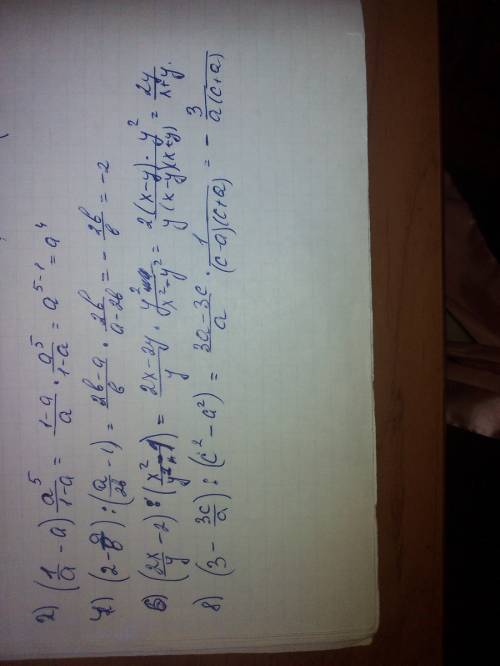 2) (1/a - a) a^5/(1-a) = (1-a)/a · a^5/(1-a) = a^(5-1) = a^4
4) (2 - a/b) : (a/2b - 1) = (2b-a)/b · 2b/(a-2b) = - 2b/b = -2
6) (2x/y - 2) : (x^2/y^2 - 1) = (2x-2y)/y · y^2/(x^2-y^2) = 2(x-y)·y^2/(y(x-y)(x+y)) = 2y/(x+y).
8) (3 - 3c/a) : (c^2 - a^2) = (3a-3c)/a · 1/((c-a)(c+a)) = - 3/(a(c+a))